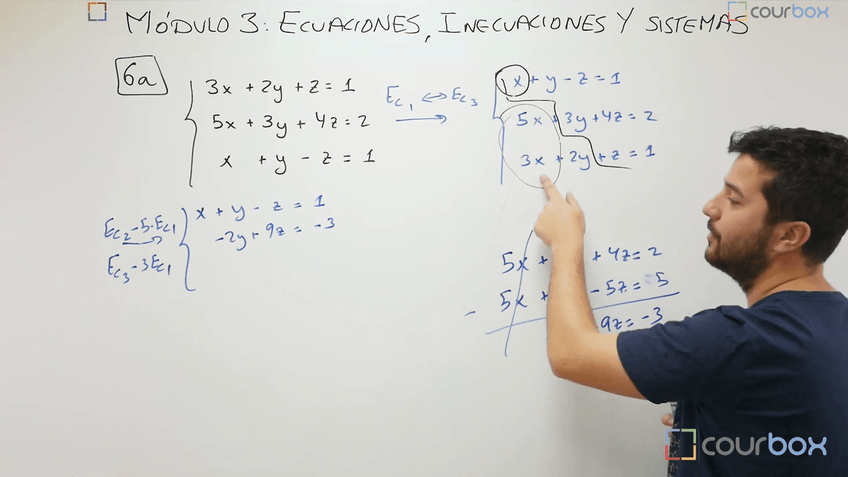 MÓDULO 3: ECUACIONES, INECUACIONES Y SISTEMAS
courbox
6a
3x + 2y + z = 1
5x + 3y + 4z = 2
x + y - z = 1
Ec1 ↔ Ec3
x + y - z = 1
5x + 3y + 4z = 2
3x + 2y + z = 1
Ec2 - 5·Ec1
Ec3 - 3Ec1
x + y - z = 1
-2y + 9z = -3
5x + + 4z = 2
- 5x + - 5z = 5
9z = -3
courbox